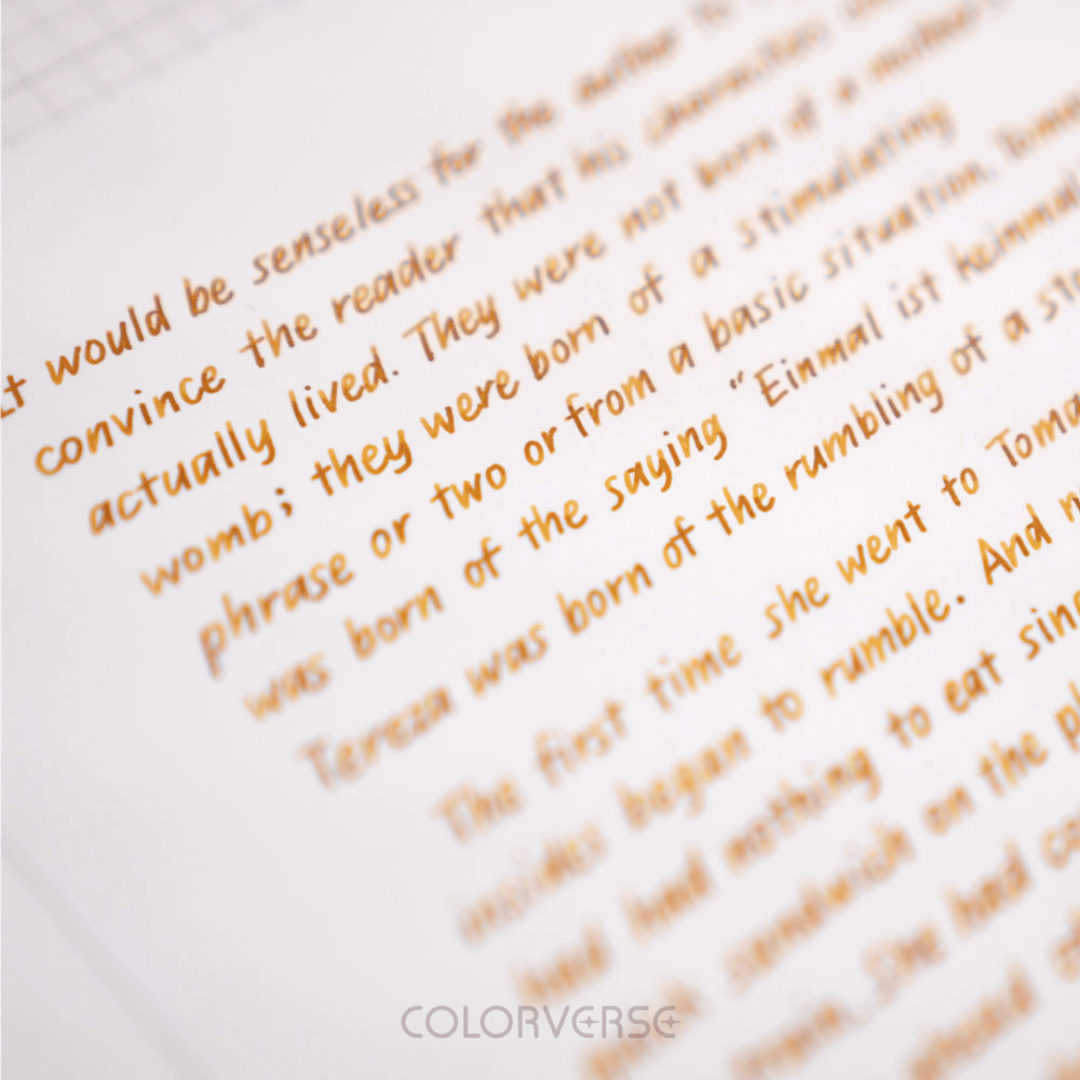 It would be senseless for the author to
convince the reader that his characters
actually lived. They were not born of a mother's
womb; they were born of a stimulating
phrase or two or from a basic situation. Tomas
was born of the saying "Einmal ist keinmal
Tereza was born of the rumbling of a sto
The first time she went to Toma
insides began to rumble. And n
had had nothing to eat sinc
quick sandwich on the pl
again. She had
COLORVERSE